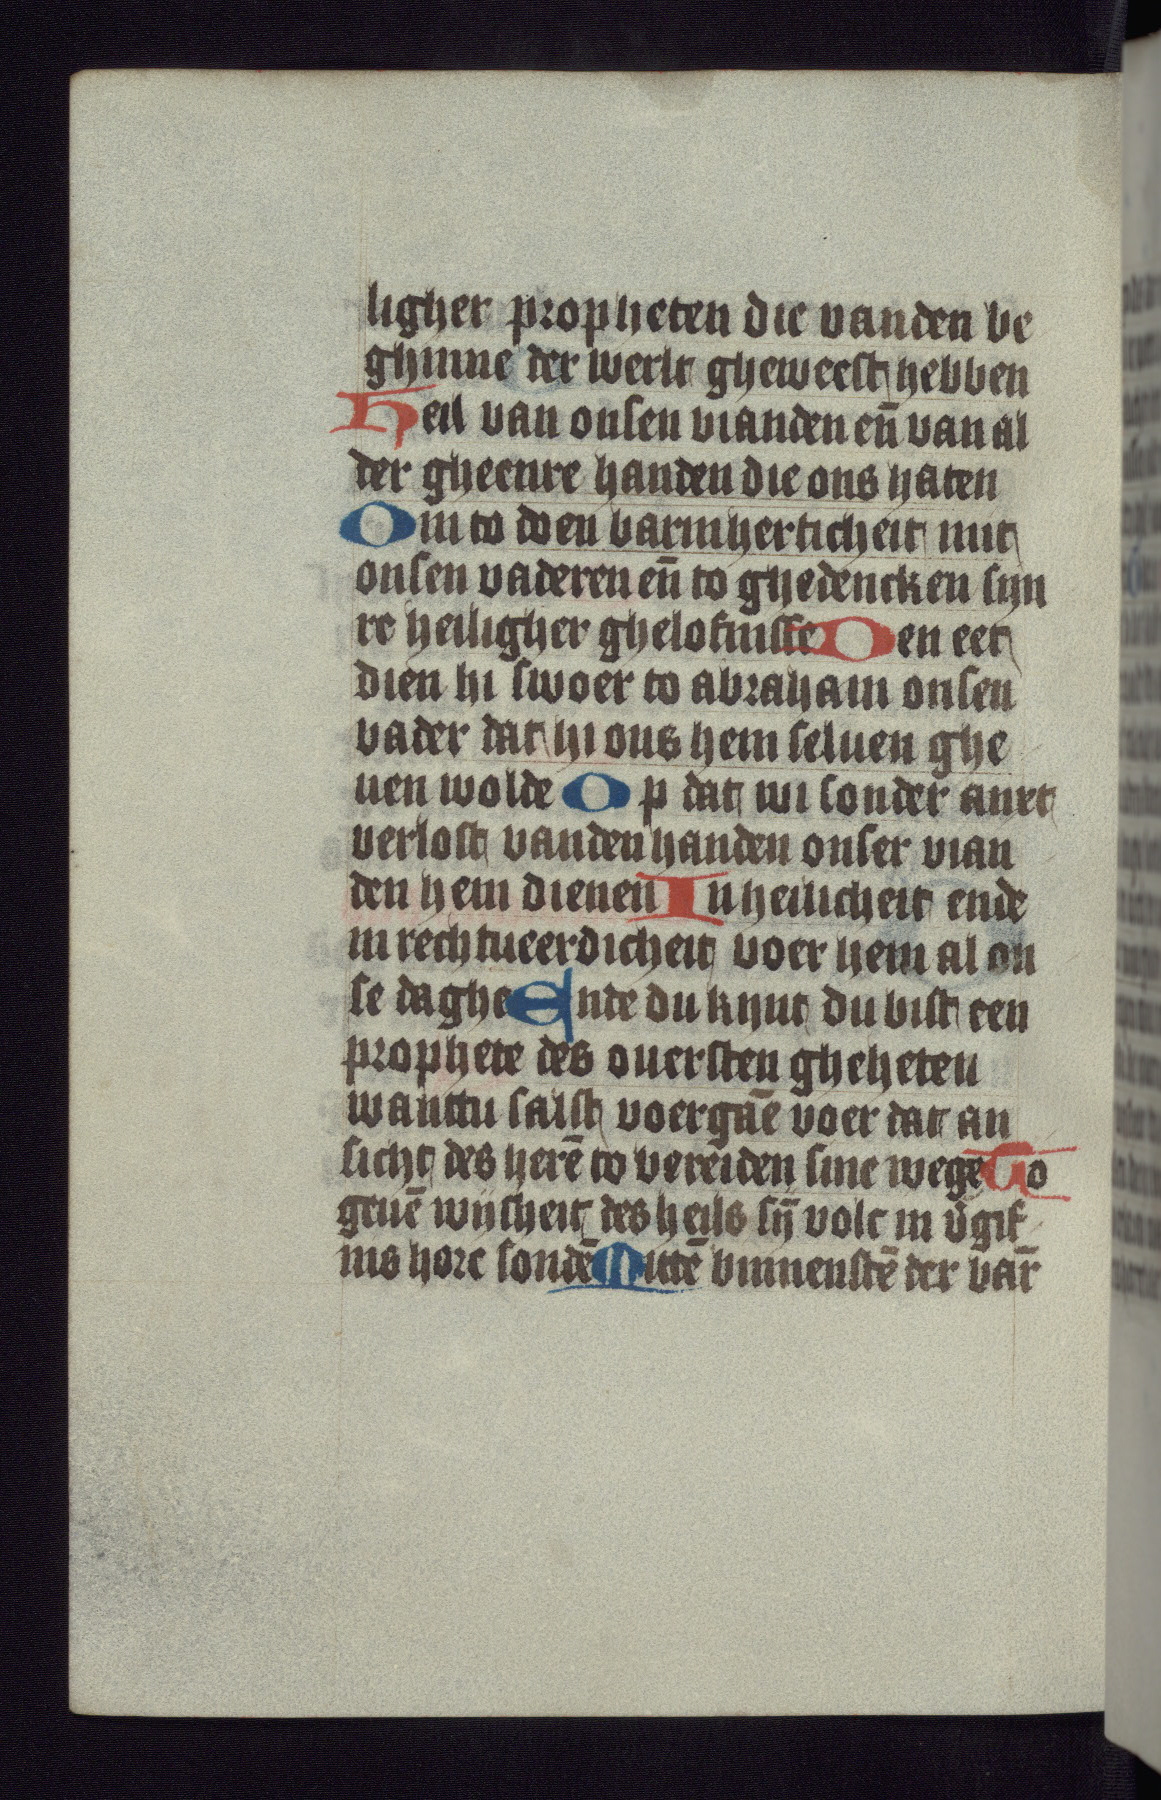 ligher propheten die vanden be
ghinne der werlt gheweest hebben
Heil van onsen vianden eñ van al
der gheenre handen die ons haten
Om to doen barmherticheit mit
onsen vaderen eñ to ghedencken sijn
re heiligher ghelofnisse Den eet
dien hi swoer to abraham onsen
vader dat hi ons hem seluen ghe
uen wolde Op dat wi sonder anxt
verlost vanden handen onser vian
den hem dienen In heilicheit ende
in rechtueerdicheit voer hem al on
se daghe Ende du kijnt du bist een
prophete des ouersten gheheten
wanttu salst voergaē voer dat an
sicht des herē to bereiden sine wegē To
geuē wijsheit des heils sȳ volc in v̄gif
nis hore sondē Mittē binnenstē der bar̄